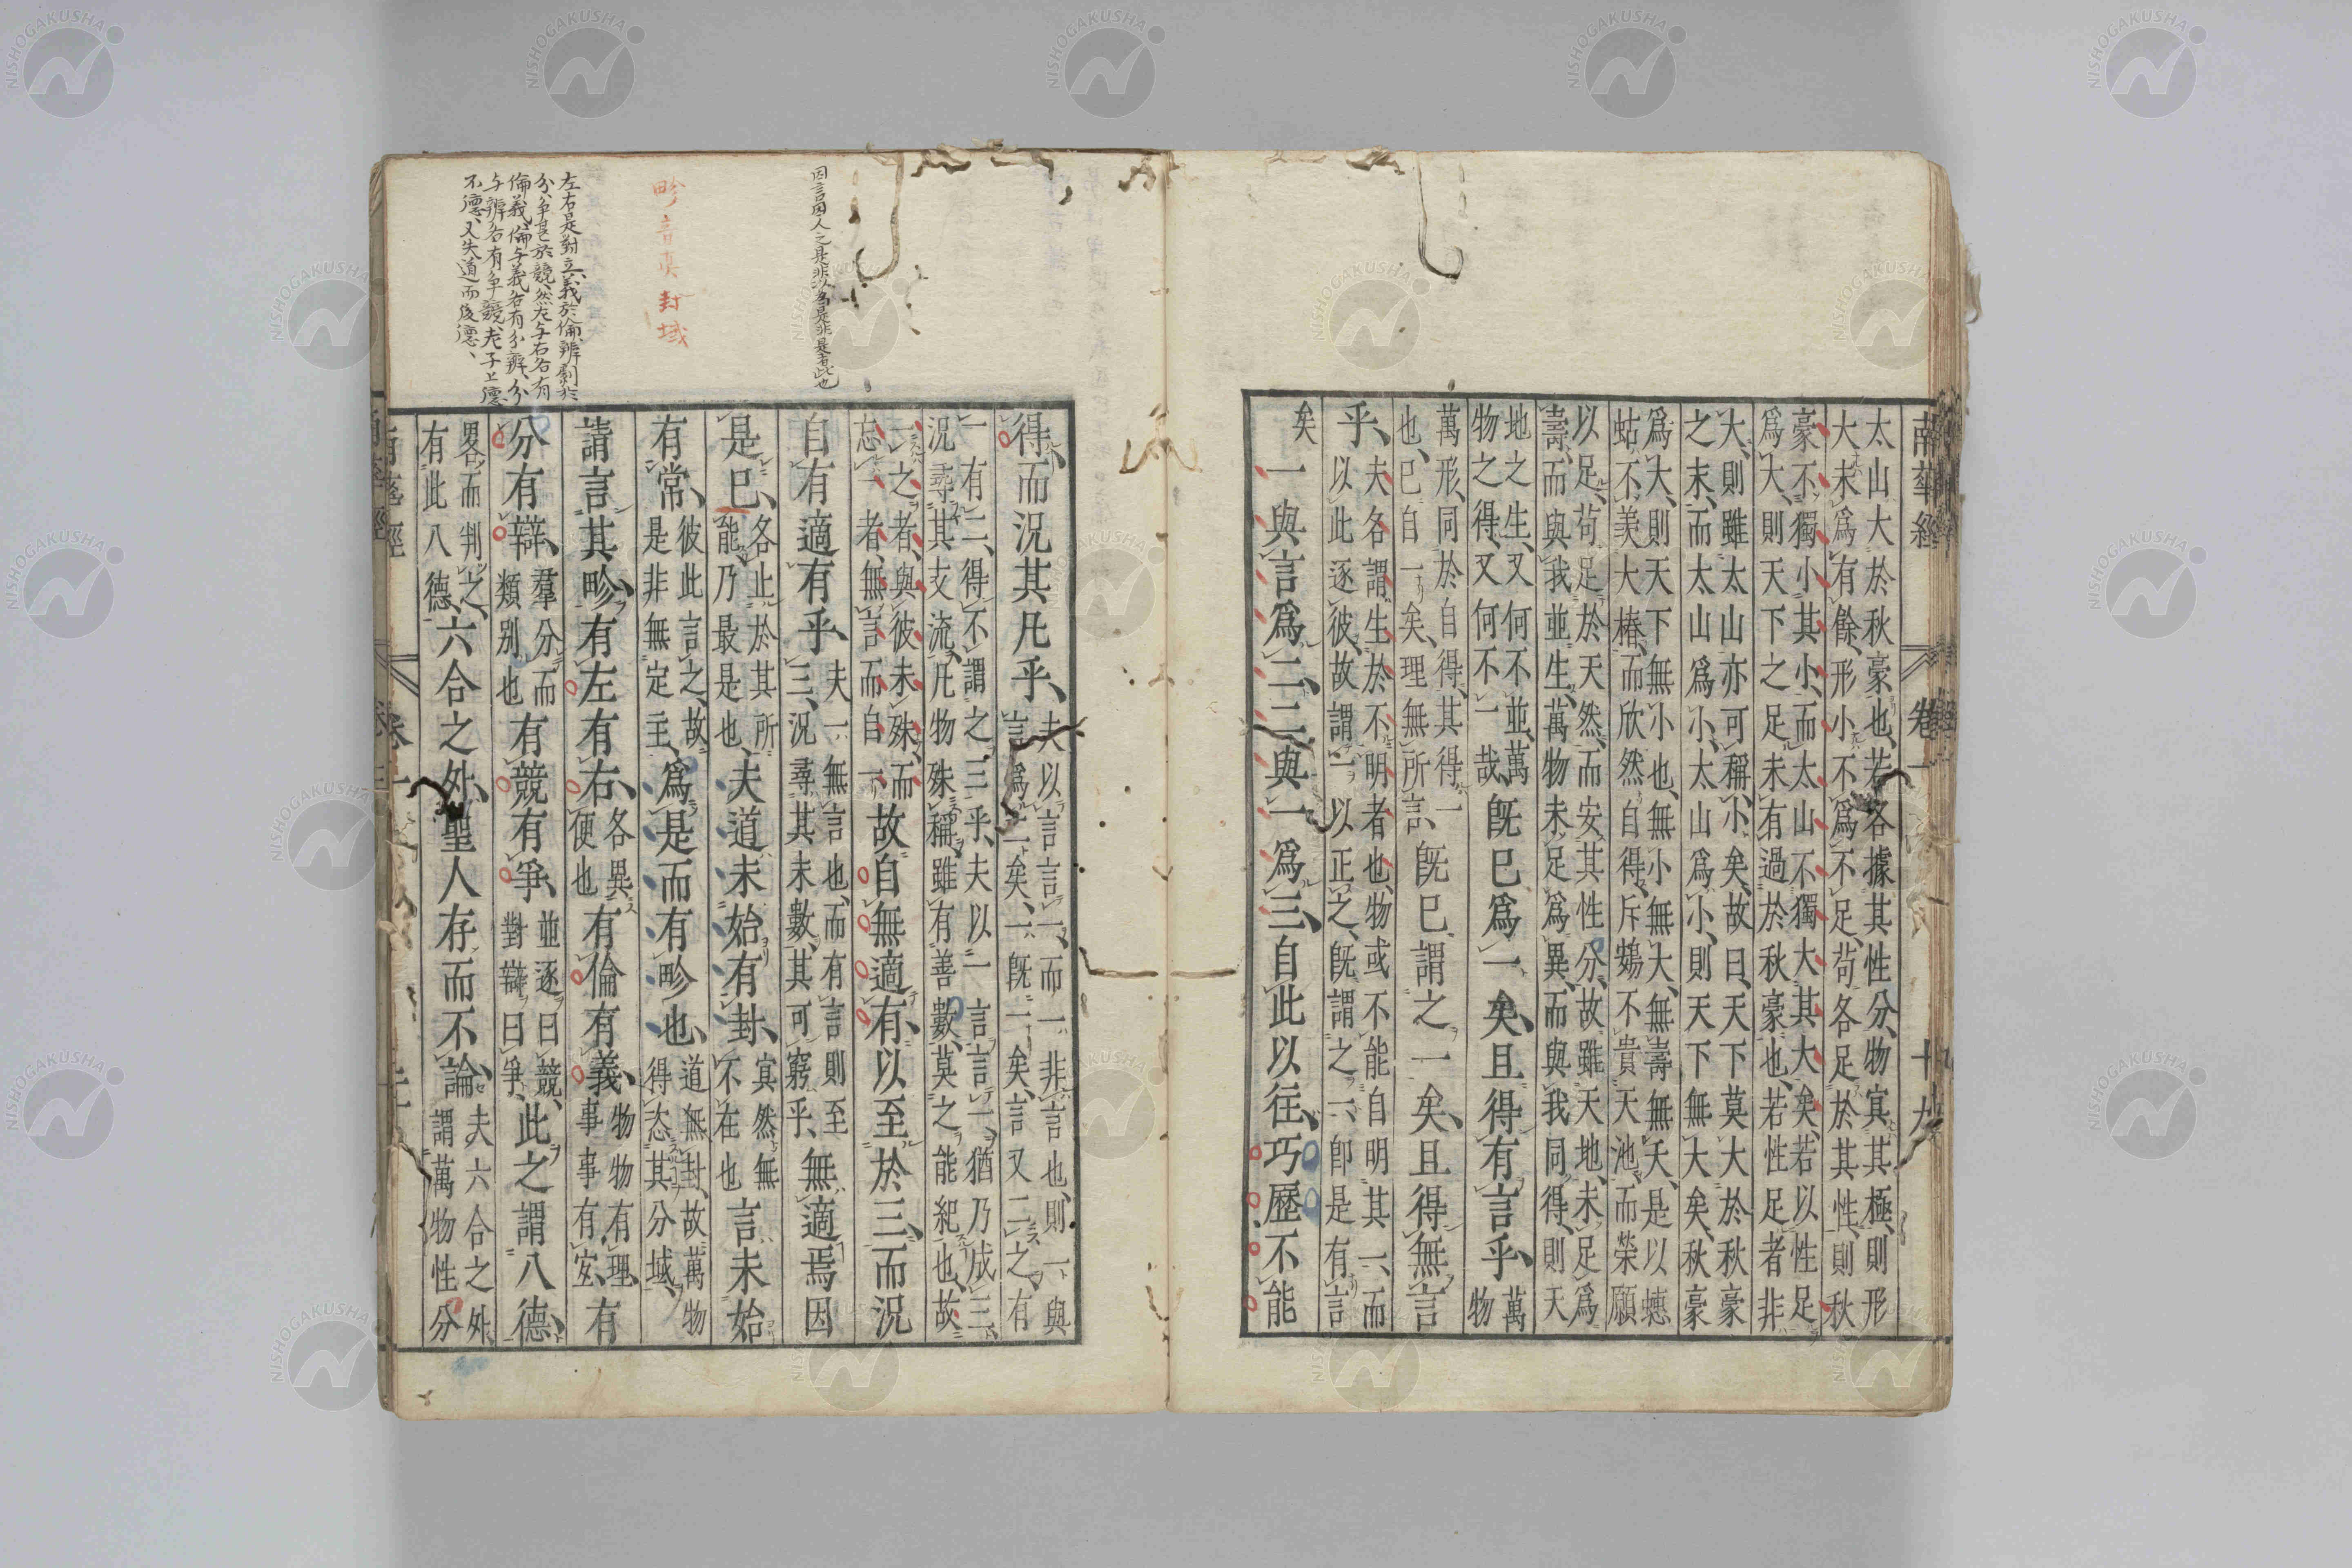 南華經 卷一 十九
太山大於秋豪也若各據其性分物冥其極則形
大未爲有餘形小不爲不足苟各足於其性則秋
豪不獨小其小而太山不獨大其大矣若以性足
爲大則天下之足未有過於秋豪也若性足者非
大則雖太山亦可稱小矣故曰天下莫大於秋豪
之末而太山爲小太山爲小則天下無大矣秋豪
爲大則天下無小也無小無大無壽無夭是以蟪
蛄不羡大椿而欣然自得斥鴳不貴天池而榮願
以足苟足於天然而安其性分故雖天地未足爲
壽而與我並生萬物未足爲異而與我同得則天
地之生又何不並萬
物之得又何不一哉
既已爲一矣且得有言乎
萬
物
萬形同於自得其得一
也已自一矣理無所言
既已謂之一矣且得無言
乎
夫各謂生於不明者也物或不能自明其一而
以此逐彼故謂一以正之既謂之一即是有言
矣
一與言爲二二與一爲三自此以往巧歷不能
因言因人之是非以爲是非是者此也
畛音真封域
左右是對立、義於倫、辨劇於
分争甚於競、然左与右各有
倫義、倫与義各有分辨、分
与辨各有争競、老子上德
不德、又失道而後德、
得而況其凡乎
夫以言言一而一非言也則一與
言爲二矣一既一矣言又二之有
一有二得不謂之三乎夫以一言言一猶乃成三
況尋其支流凡物殊稱雖有善數莫之能紀也故
一之者與彼未殊而
忘一者無言而自一
故自無適有以至於三而況
自有適有乎
夫一無言也而有言則至
三況尋其末數其可窮乎
無適焉因
是已
各止於其所
能乃最是也
夫道未始有封
冥然無
不在也
言未始
有常
彼此言之故
是非無定主
爲是而有畛也
道無封故萬物
得恣其分域
請言其畛有左有右
各異
便也
有倫有義
物物有理
事事有宜
有
分有辯
羣分而
類別也
有競有爭
並逐曰競
對辯曰爭
此之謂八德
畧而判之
有此八德
六合之外聖人存而不論
夫六合之外
謂萬物性分
南華經 卷一
NISHOGAKUSHA